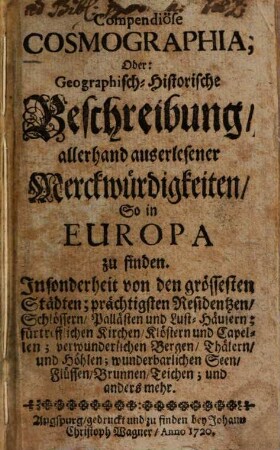 Compendiöse
COSMOGRAPHIA;
Oder:
Geographisch-Historische
Beschreibung/
allerhand auserlesener
Merckwürdigkeiten/
So in
EUROPA
zu finden.
Insonderheit von den grössesten
Städten; prächtigsten Residentzen/
Schlössern/ Pallästen und Lust-Häusern;
fürtrefflichen Kirchen/ Klöstern und Capel-
len; verwunderlichen Bergen/ Thälern/
und Höhlen; wunderbarlichen Seen/
Flüssen/ Brunnen/ Teichen; und
anders mehr.
Augspurg/ gedruckt und zu finden bey Johann
Christoph Wagner/ Anno 1720.